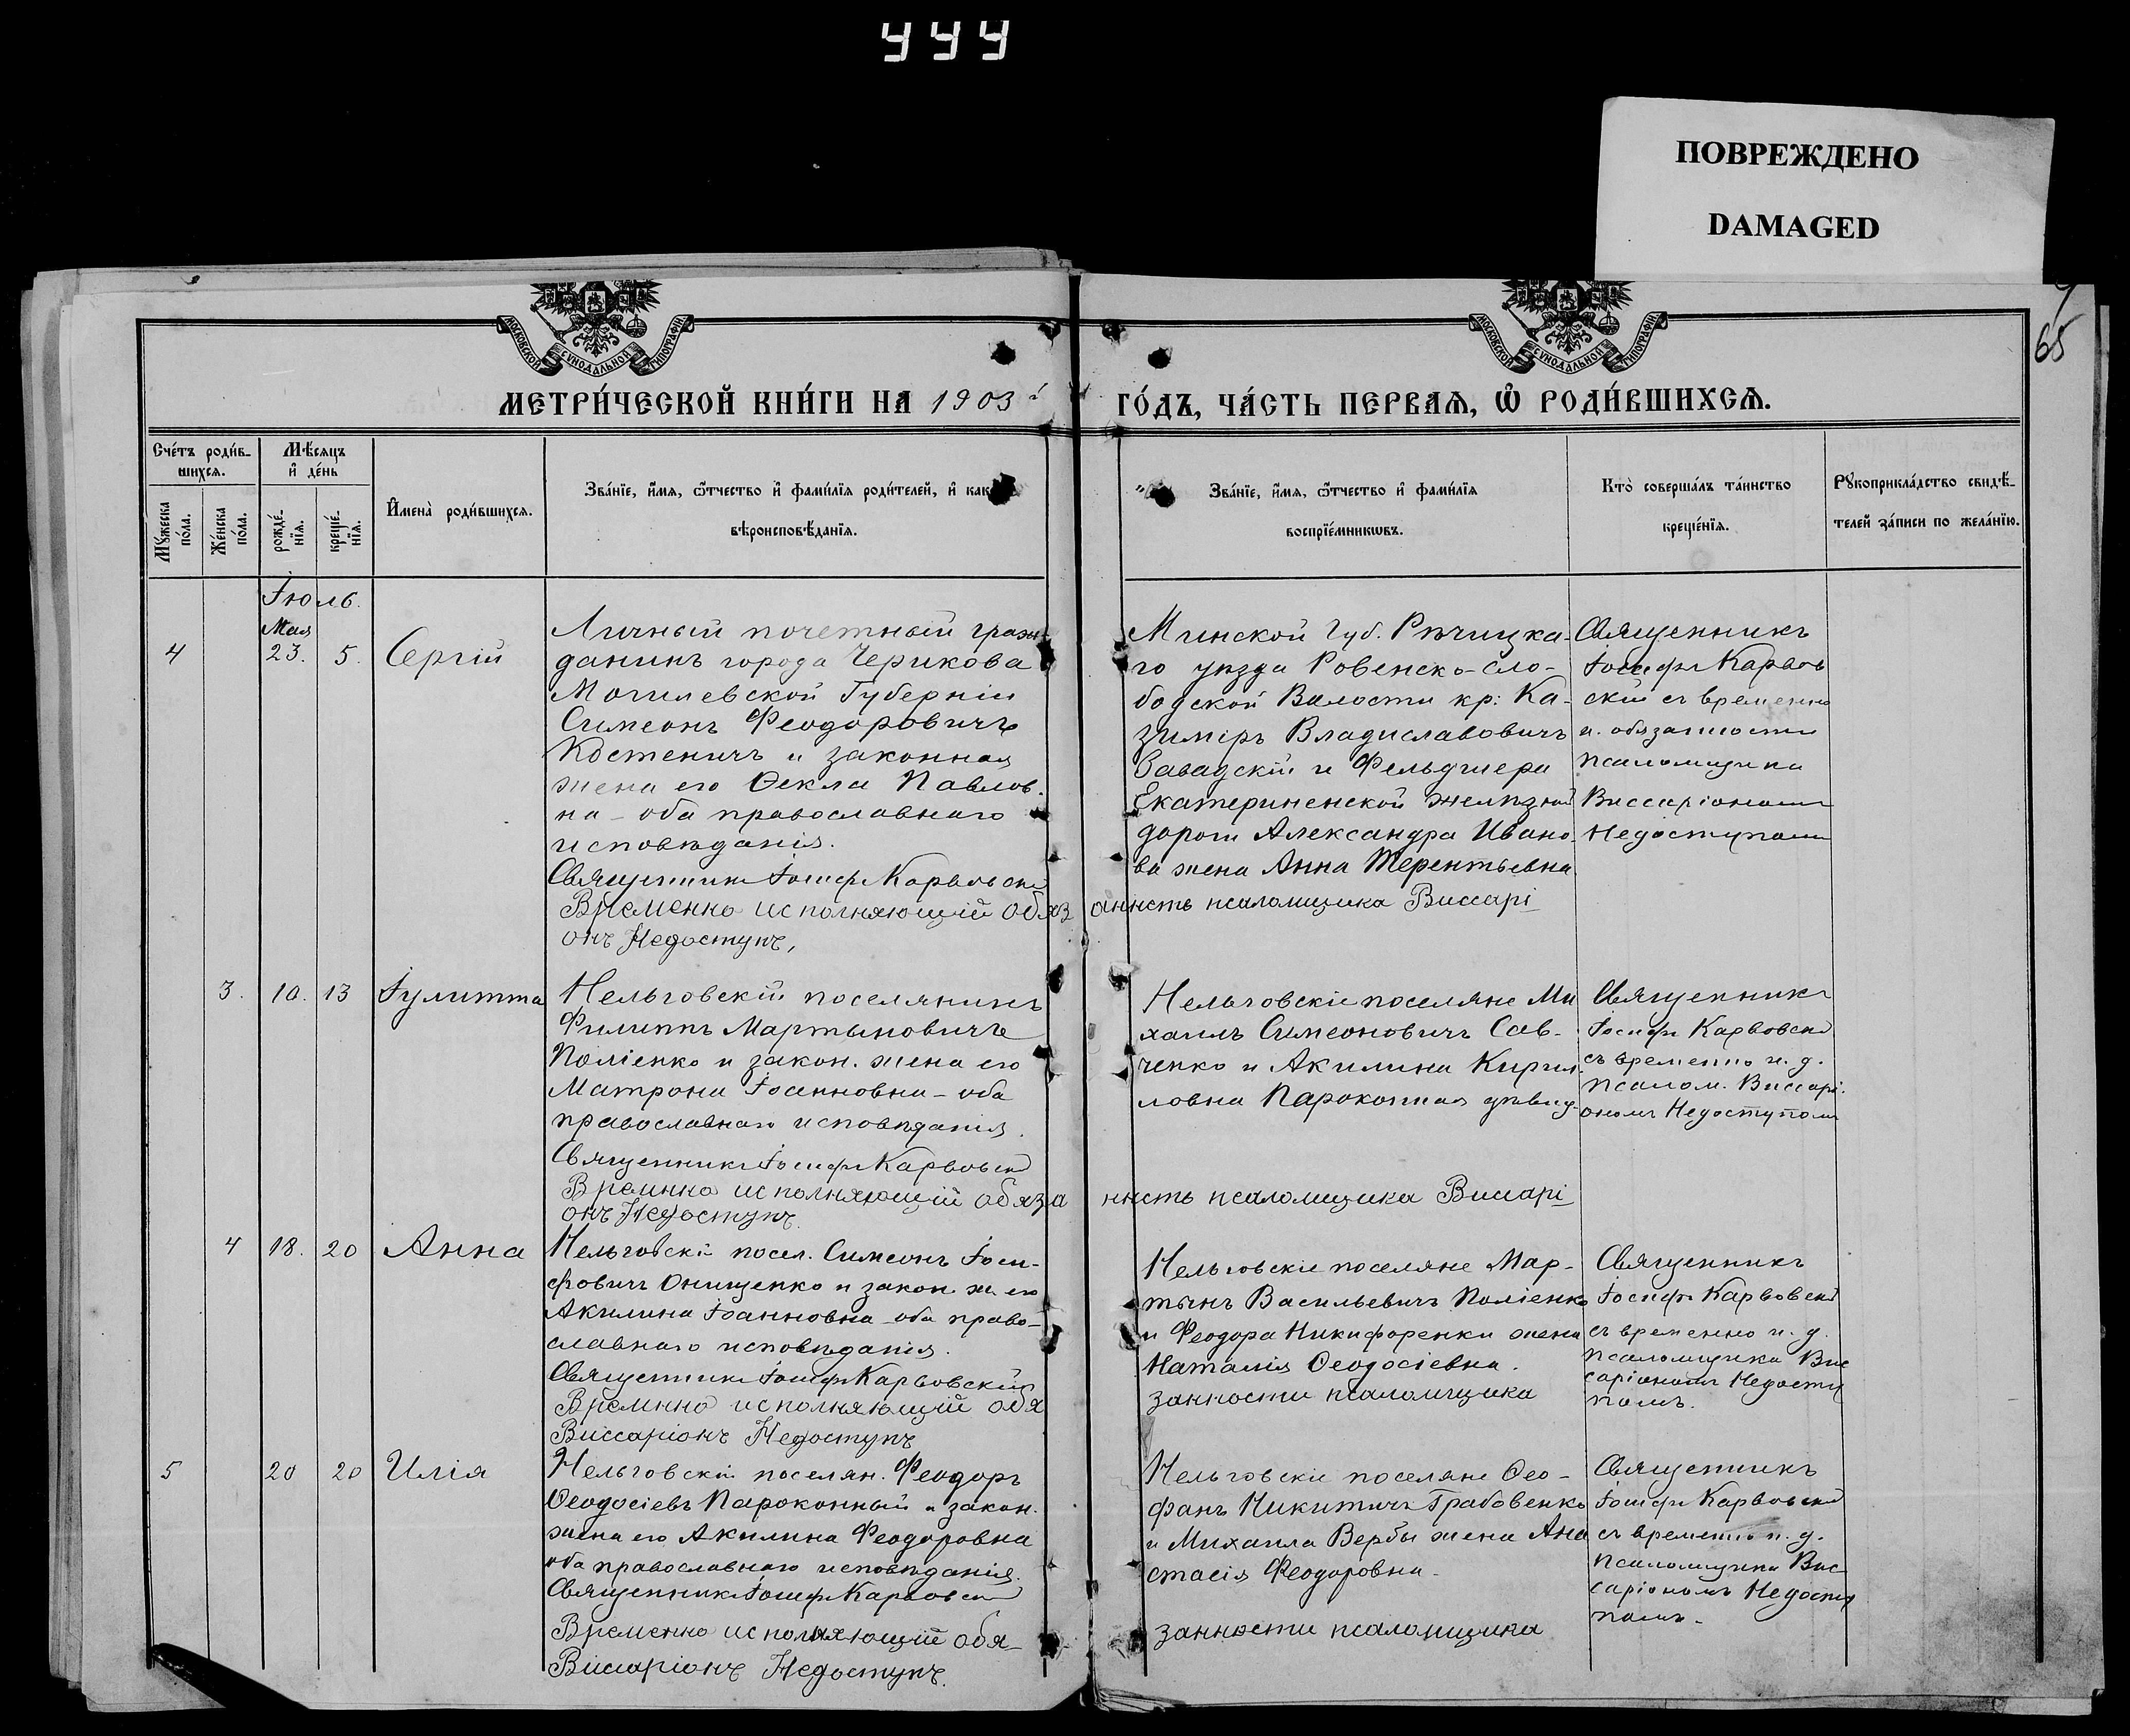 УУУ
ПОВРЕЖДЕНО
DAMAGED
65
МОСКОВСКОЙ СѴНОДАЛЬНОЙ ТИПОГРАФІИ
МОСКОВСКОЙ СѴНОДАЛЬНОЙ ТИПОГРАФІИ
МЕТРИ́ЧЕСКОЙ КНИ́ГИ НА 1903й ГО́ДЪ, ЧА́СТЬ ПЕРВАѦ, Ѽ РОДИ́ВШИХСѦ.
Сче́тъ роди́в-
шихсѧ.
Мꙋ́жеска по́ла.
Же́нска по́ла.
Мѣ́сяцъ
и҆ де́нь
рожде́-
нїѧ.
креще́-
нїѧ.
И҆мена̀ роди́вшихсѧ.
Зва́нїе, и҆́мѧ, ѻ҆́тчество и҆ фами́лїѧ роди́телей, и҆ как
вѣроисповѣ́данїѧ.
Зва́нїе, и҆́мѧ, ѻ҆́тчество и҆ фами́лїѧ
воспрїе́мникѡвъ.
Кто̀ соверша́лъ та́инство
креще́нїѧ.
Рꙋкоприкла́дство свидѣ́-
телей за́писи по жела́нїю.
Іюль.
Мая
4 23. 5. Сергій
Личный почетный граж-
данинъ города Черикова
Могилевской Губерніи
Симеонъ Феодоровичъ
Костеничъ и законная
жена его Ѳекла Павлов-
на - оба православнаго
исповѣданія.
Священникъ Іосифъ Карвовскій
Временно исполняющій обяз анность псаломщика Виссарі
онъ Недоступъ,
Минской Губ. Рѣчицка-
го уѣзда Ровенско-Сло-
бодской Волости кр: Ка-
зиміръ Владиславовичъ
Завадскій и Фельдшера
Екатериненской желѣзной
дороги Александра Ивано-
ва жена Анна Терентьевна
Священникъ
Іосифъ Карвов
скій съ временно
и. обязанности
псаломщика
Виссаріономъ
Недоступомъ
3. 10. 13 Іулитта
Нельговскій поселянинъ
Филиппъ Мартыновичъ
Поліенко и закон. жена его
Матрона Іоанновна - оба
православнаго исповѣданія.
Священникъ Іосифъ Карвовскій
Времнно исполняющій обяза нность псаломщика Виссарі
онъ Недоступъ.
Нельговскіе поселяне Ми
хаилъ Симеоновичъ Сав-
ченко и Акилина Кирил-
ловна Пароконная
Священникъ
Іосифъ Карвовскій
съ временно и. д.
псалом. Виссарі-
ономъ Недоступомъ
4 18. 20 Анна
Нельговскій посел. Симеонъ Іоси-
фовичъ Онищенко и закон. ж. его
Акилина Іоанновна - оба право-
славнаго исповѣданія.
Священникъ Іосифъ Карвовскій
Времнно исполняющій обя занности псаломщика
Виссаріонъ Недоступъ
Нельговскіе поселяне Мар-
тынъ Васильевичъ Поліенко
и Феодора Никифоренки жена
Наталія Ѳеодосіевна.
Священникъ
Іосифъ Карвовскій
съ временно и. д.
псаломщика Вис
саріономъ Недосту
помъ.
5 20 20 Илія
Нельговскій поселян. Феодоръ
Ѳеодосіевъ Пароконный и закон.
жена его Акилина Феодоровна
оба православнаго исповѣданія.
Священникъ Іосифъ Карвовскій
Временно исполняющій обя- занности псаломщика
Виссаріонъ Недоступъ.
Нельговскіе поселяне Ѳео-
фанъ Никитичъ Грабовенко
и Михаила Вербы жена Ана
стасія Феодоровна.
Священникъ
Іосифъ Карвовскій
съ временно и. д.
псаломщика Вис-
саріономъ Недосту
помъ.